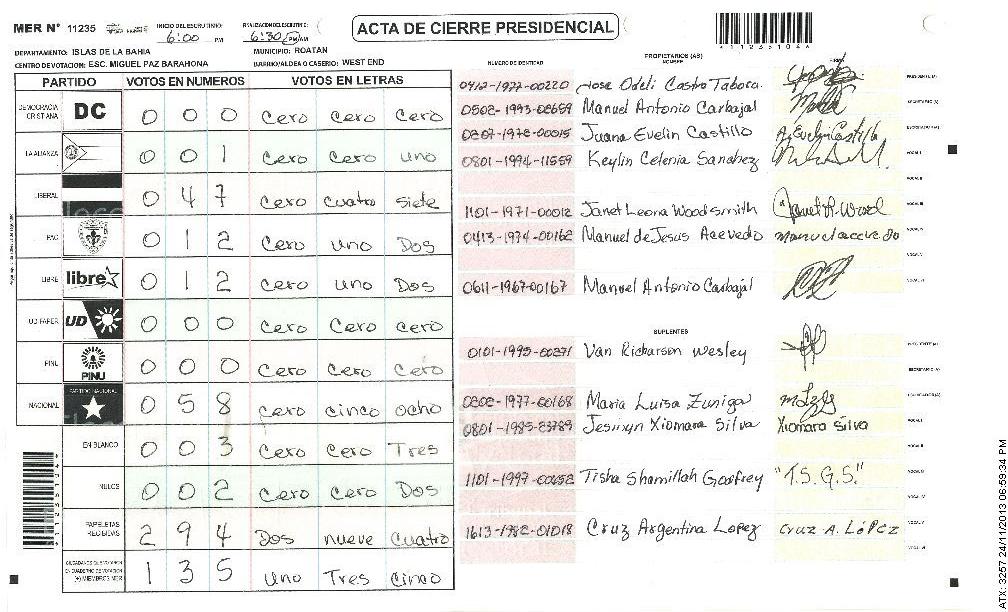 MER N° 11235
INICIO DEL ESCRUTINIO: 6:00 PM
FINALIZACION ESCRUTINIO: 6:30 PM
ACTA DE CIERRE PRESIDENCIAL
DEPARTAMENTO: ISLAS DE LA BAHIA
MUNICIPIO: ROATAN
CENTRO DE VOTACION: ESC. MIGUEL PAZ BARAHONA
BARRIO/ALDEA O CASERIO: WEST END
PARTIDO VOTOS EN NUMEROS VOTOS EN LETRAS
DEMOCRACIA CRISTIANA DC 0 0 0 Cero Cero Cero
LA ALIANZA 0 0 1 Cero Cero uno
LIBERAL 0 4 7 Cero cuatro siete
PAC 0 1 2 Cero uno Dos
LIBRE libre 0 1 2 Cero uno Dos
UD FAPER UD 0 0 0 Cero Cero cero
PINU PINU 0 0 0 Cero Cero Cero
NACIONAL PARTIDO NACIONAL 0 5 8 Cero cinco ocho
EN BLANCO 0 0 3 Cero Cero Tres
NULOS 0 0 2 Cero Cero Dos
PAPELETAS RECIBIDAS 2 9 4 Dos nueve Cuatro
CIUDADANOS QUE VOTARON EN CUADERNO DE VOTACION (+) MIEMBROS MER 1 3 5 uno Tres cinco
NUMERO DE IDENTIDAD
PROPIETARIOS (AS)
NOMBRE
FIRMA
0412-1977-00220 Jose Odeli Castro Tabora
0502-1993-02659 Manuel Antonio Carbajal
0307-1978-00015 Juana Evelin Castillo A. Evelin Castillo
0801-1994-11559 Keylin Celenia Sanchez
1101-1971-00012 Janet Leona Woodsmith Janet L. Wood
0413-1974-00162 Manuel de Jesus Acevedo manuel acevedo
0611-1967-00167 Manuel Antonio Carbajal
SUPLENTES
0101-1995-00371 Van Richarson Wesley
0302-1977-00168 Maria Luisa Zuniga
0801-1985-23789 Jesmyn Xiomara Silva Xiomara Silva
1101-1997-00452 Tisha Shamillah Godfrey "T.S.G.S."
1613-1982-01018 Cruz Argentina Lopez Cruz A. López
ATX: 3257 24/11/2013 06:59:34 PM